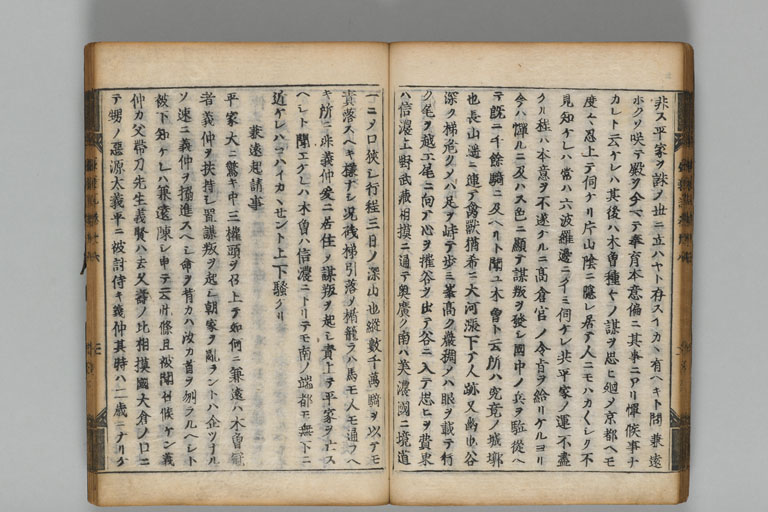 非ス平家ヲ誅ノ世ニ立ハヤト存スイカヽ有ヘキト問兼遠
ホクソ咲テ殿ヲ今マテ奉育本意偏ニ其事ニアリ憚候事ナ
カレト云ケレハ其後ハ木曽種ヤノ謀ヲ思ヒ廻ノ京都ヘモ
度々忍上テ伺ケリ片山陰ニ隠レ居テ人ニモハカ〱レク不
見知ケレハ常ハ六波羅邊ニイミ伺ケレ共平家ノ運不盡
クル程ハ本意ヲ不遂ケルニ高倉宮ノ令旨ヲ給リケルヨリ
今ハ憚ルニ及ハス色ニ顕テ謀叛ヲ發シ國中ノ兵ヲ駈從ヘ
テ既ニ千餘騎ニ及ヘリト聞ユ木曽ト云所ハ究竟ノ城郭
也長山遥ニ連テ禽獣猶希ニ大河漲下テ人跡又幽也谷
深ク梯危クノハ足ヲ峙テ歩ミ峯高ク巌稠ノハ眼ヲ載テ行
ク尾ヲ越エ尾ニ向テ心ヲ摧谷ヲ出テ谷ニ入テ思ヒヲ費東
ハ信濃上野武蔵相摸ニ通テ奥廣ク南ハ美濃國ニ境道
一ニノ口狭シ行程三日ノ深山也縦数千萬騎ヲ以テモ
責落スヘキ様ナシ況棧梯引落ノ楯籠ラハ馬モ人モ通フヘ
キ所ニ非義仲愛ニ居住ノ謀叛ヲ起シ責上テ平家ヲ亡ス
ヘシト聞エケレハ木曽ハ信濃ニトリテモ南ノ端都モ無下ニ
近ケレハコハイカヽせント上下騒ケリ
兼遠起請事
平家大ニ驚キ中三權頭ヲ召上テ如何ニ兼遠ハ木曽冠
者義仲ヲ扶持シ置謀叛ヲ起シ朝家ヲ亂ラントハ企ツナル
ソ速ニ義仲ヲ搦進スヘシ命ヲ背カハ汝カ首ヲ刎ラルヘレト
被下知ケレハ兼遠陳レ申テ云此條且被聞召候ケン義
仲カ父帯刀先生義賢ハ去久壽ノ比相摸國大倉ノ口ニ
テ甥ノ惡源太義平ニ被討侍キ義仲其時ハ二歳ニナリケ